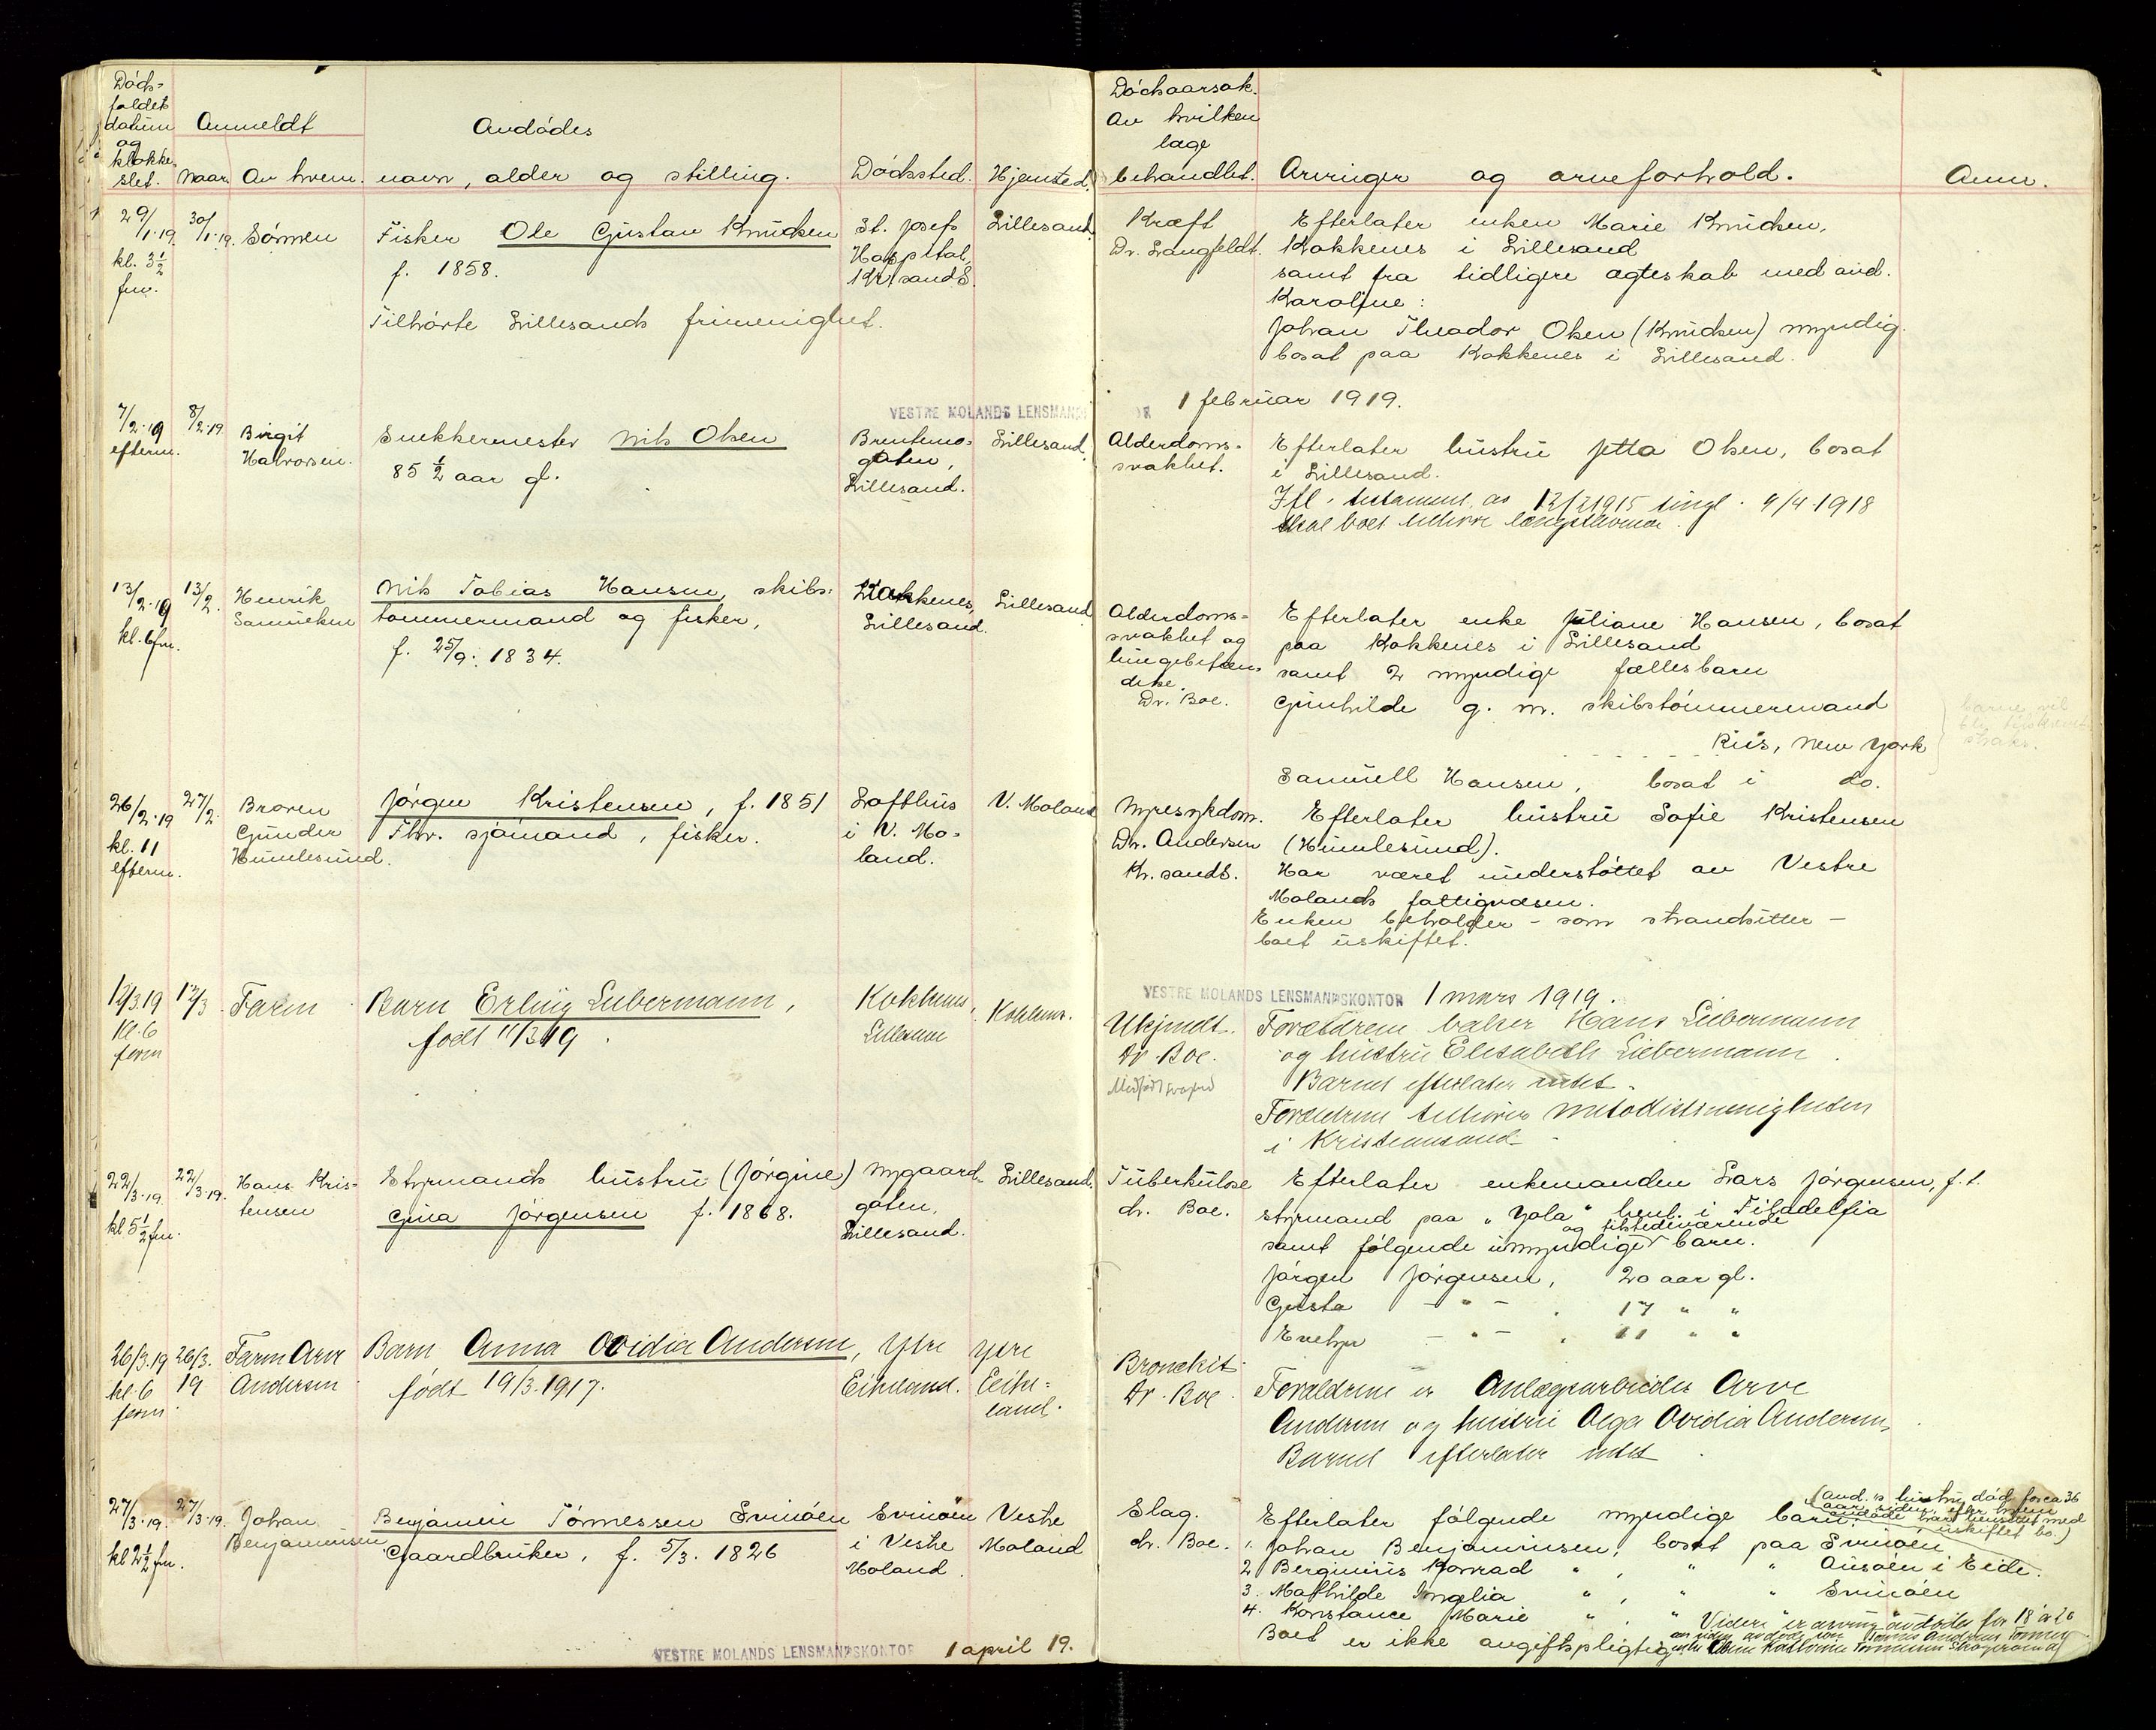 Døds-
faldets
datum
og
klokke-
slet.
Anmeldt
Naar
Av hvem.
Avdødes
navn, alder og stilling.
Dødssted.
Hjemsted.
Dødsaarsak.
Av hvilken
læge
behandlet.
Arvinger og arveforhold.
Anm.
29/1.19.
kl. 3½
fm.
30/1.19.
Sønnen
Fisker Ole Gustav Knudsen
f. 1858.
Tilhørte Lillesands frimenighet.
St. Josefs
Hospital,
Kr.sand S.
Lillesand.
Kræft
Dr. Langfeldt.
Efterlater enken Marie Knudsen,
Kokkenes i Lillesand
samt fra tidligere ægteskab med avd.
Karoline:
Johan Theodor Olsen (Knudsen) myndig.
bosat paa Kokkenes i Lillesand.
VESTRE MOLANDS LENSMAN
1 februar 1919.
7/2.19
efterm.
8/2.19
Birgit
Halvorsen.
Snekkermester Nils Olsen
85 ½ aar gl.
Brentemo-
gaten,
Lillesand.
Lillesand.
Alderdoms-
svakhet.
Efterlater hustru Jetta Olsen, bosat
i Lillesand.
Ifl. testament av 12/2 1915 tingl. 4/4 1918
skal boet tilhøre længstlevende.
13/2.19
kl. 6 fm.
13/2.
Henrik
Samuelsen
Nils Tobias Hansen, skibs-
tømmermand og fisker,
f. 25/9. 1834.
Kokkenes,
Lillesand.
Lillesand
Alderdoms-
svakhet og
lungebeten-
delse.
Dr. Boe.
Efterlater enke Juliane Hansen, bosat
paa Kokkenes i Lillesand
samt 2 myndige fællesbarn
Gunhilde g. m. skibstømmermand
Riis, New York
Samuell Hansen, bosat i do.
26/2.19
kl. 11
efterm.
27/2.
Broren
Gunder
Humlesund.
Jørgen Kristensen, f. 1851
Fhv. sjømand, fisker.
Lofthus
i V. Mo-
land.
V. Moland
Nyresykdom.
Dr. Andersen
Kr.sand S.
Efterlater hustru Sofie Kristensen
(Humlesund).
Har været understøttet av Vestre
Molands fattigvæsen.
Enken beholder - som strandsitter -
boet uskiftet.
VESTRE MOLANDS LENSMANDSKONTOR 1 mars 1919.
12/3.19
Kl. 6
form
12/3
Faren
Barn Erling Liebermann,
født 11/3 19.
Kokkenes,
Lillesand
Kokkenes.
Ukjendt.
Dr. Boe.
Forældrene baker Hans Liebermann
og hustru Elisabeth Liebermann.
Barnet efterlater intet.
Forældrene tilhører metodistmenigheten
i Kristiansand.
22/3.19.
kl 5½ fm.
22/3.19.
Hans Kris-
tensen
Styrmands hustru (Jørgine)
Gina Jørgensen f. 1868.
Nygaard-
gaten,
Lillesand.
Lillesand.
Tuberkulose
dr. Boe.
Efterlater enkemanden Lars Jørgensen, f. t.
styrmand paa "Yola" heml. i Filadelfia
og tilstedeværende
samt følgende umyndige barn.
Jørgen Jørgensen, 20 aar gl.
Gusta - " - . 17 " "
Evelyn - " - . 11 " "
26/3.19
kl. 6
form
26/3.
19
Faren Arve
Andersen
Barn Anna Ovidia Andersen,
født 19/3.1917.
Ytre
Eikeland.
Ytre
Eike-
land.
Bronckit
Dr. Boe.
Forældrene er Anlægsarbeider Arve
Andersen og hustru Olga Ovidia Andersen,
Barnet efterlater intet
27/3.19.
kl 2½ fm.
27/3.19.
Johan
Benjaminsen
Benjamin Tønnessen Svinøen
Gaardbruker, f. 5/3. 1826
Svinøen
i Vestre
Moland.
Vestre
Moland
Slag.
dr. Boe.
Efterlater følgende myndige barn:
(avd.s hustru død for ca 36
aar siden, efter hvem
avdøde har hensittet med
uskiftet bo.)
1. Johan Benjaminsen, bosat paa Svinøen
2 Berginius Konrad " , " " Ausøen i Eide.
3. Mathilde Amalia " , " " Svinøen
4. Konstance Marie " . "
Boet er ikke avgiftspligtig
VESTRE MOLANDS LENSMANDSKONTOR 1 april 19.